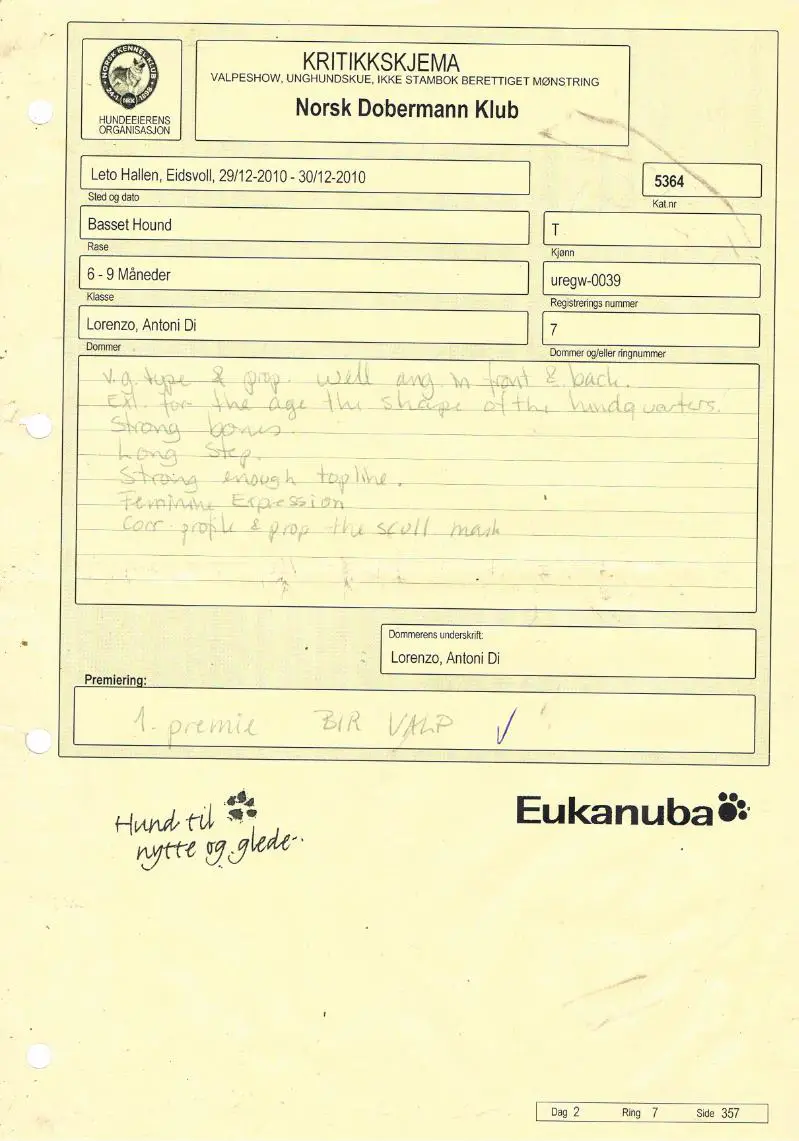 NORSK KENNEL KLUB
24-1 NKK 1898
HUNDEEIERENS
ORGANISASJON
KRITIKKSKJEMA
VALPESHOW, UNGHUNDSKUE, IKKE STAMBOK BERETTIGET MØNSTRING
Norsk Dobermann Klub
Leto Hallen, Eidsvoll, 29/12-2010 - 30/12-2010
Sted og dato
5364
Kat.nr
Basset Hound
Rase
T
Kjønn
6 - 9 Måneder
Klasse
uregw-0039
Registrerings nummer
Lorenzo, Antoni Di
Dommer
7
Dommer og/eller ringnummer
v.g. type & prop. well ang in front & back.
Exl. for the age the shape of the hindquarters.
Strong bones.
Long Step.
Strong enough topline.
Feminine Expression
Corr. profile & prop the scull mask
Dommerens underskrift:
Lorenzo, Antoni Di
Premiering:
1. premie BIR VALP
Hund til
nytte og glede
Eukanuba
Dag 2 Ring 7 Side 357